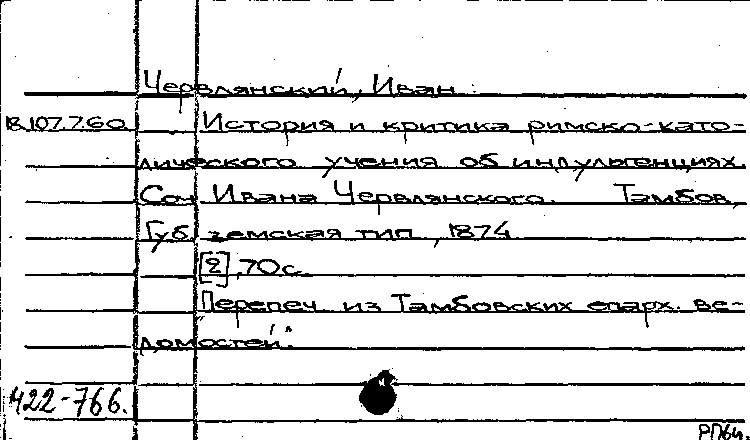 Червлянский, Иван.
18.107.7.60. История и критика римско-като-
лического учения об индульгенциях.
Соч. Ивана Червлянского. Тамбов,
Губ. земская тип., 1874
[2], 70 с.
Перепеч. из "Тамбовских епарх. ве-
домостей".
422-766.